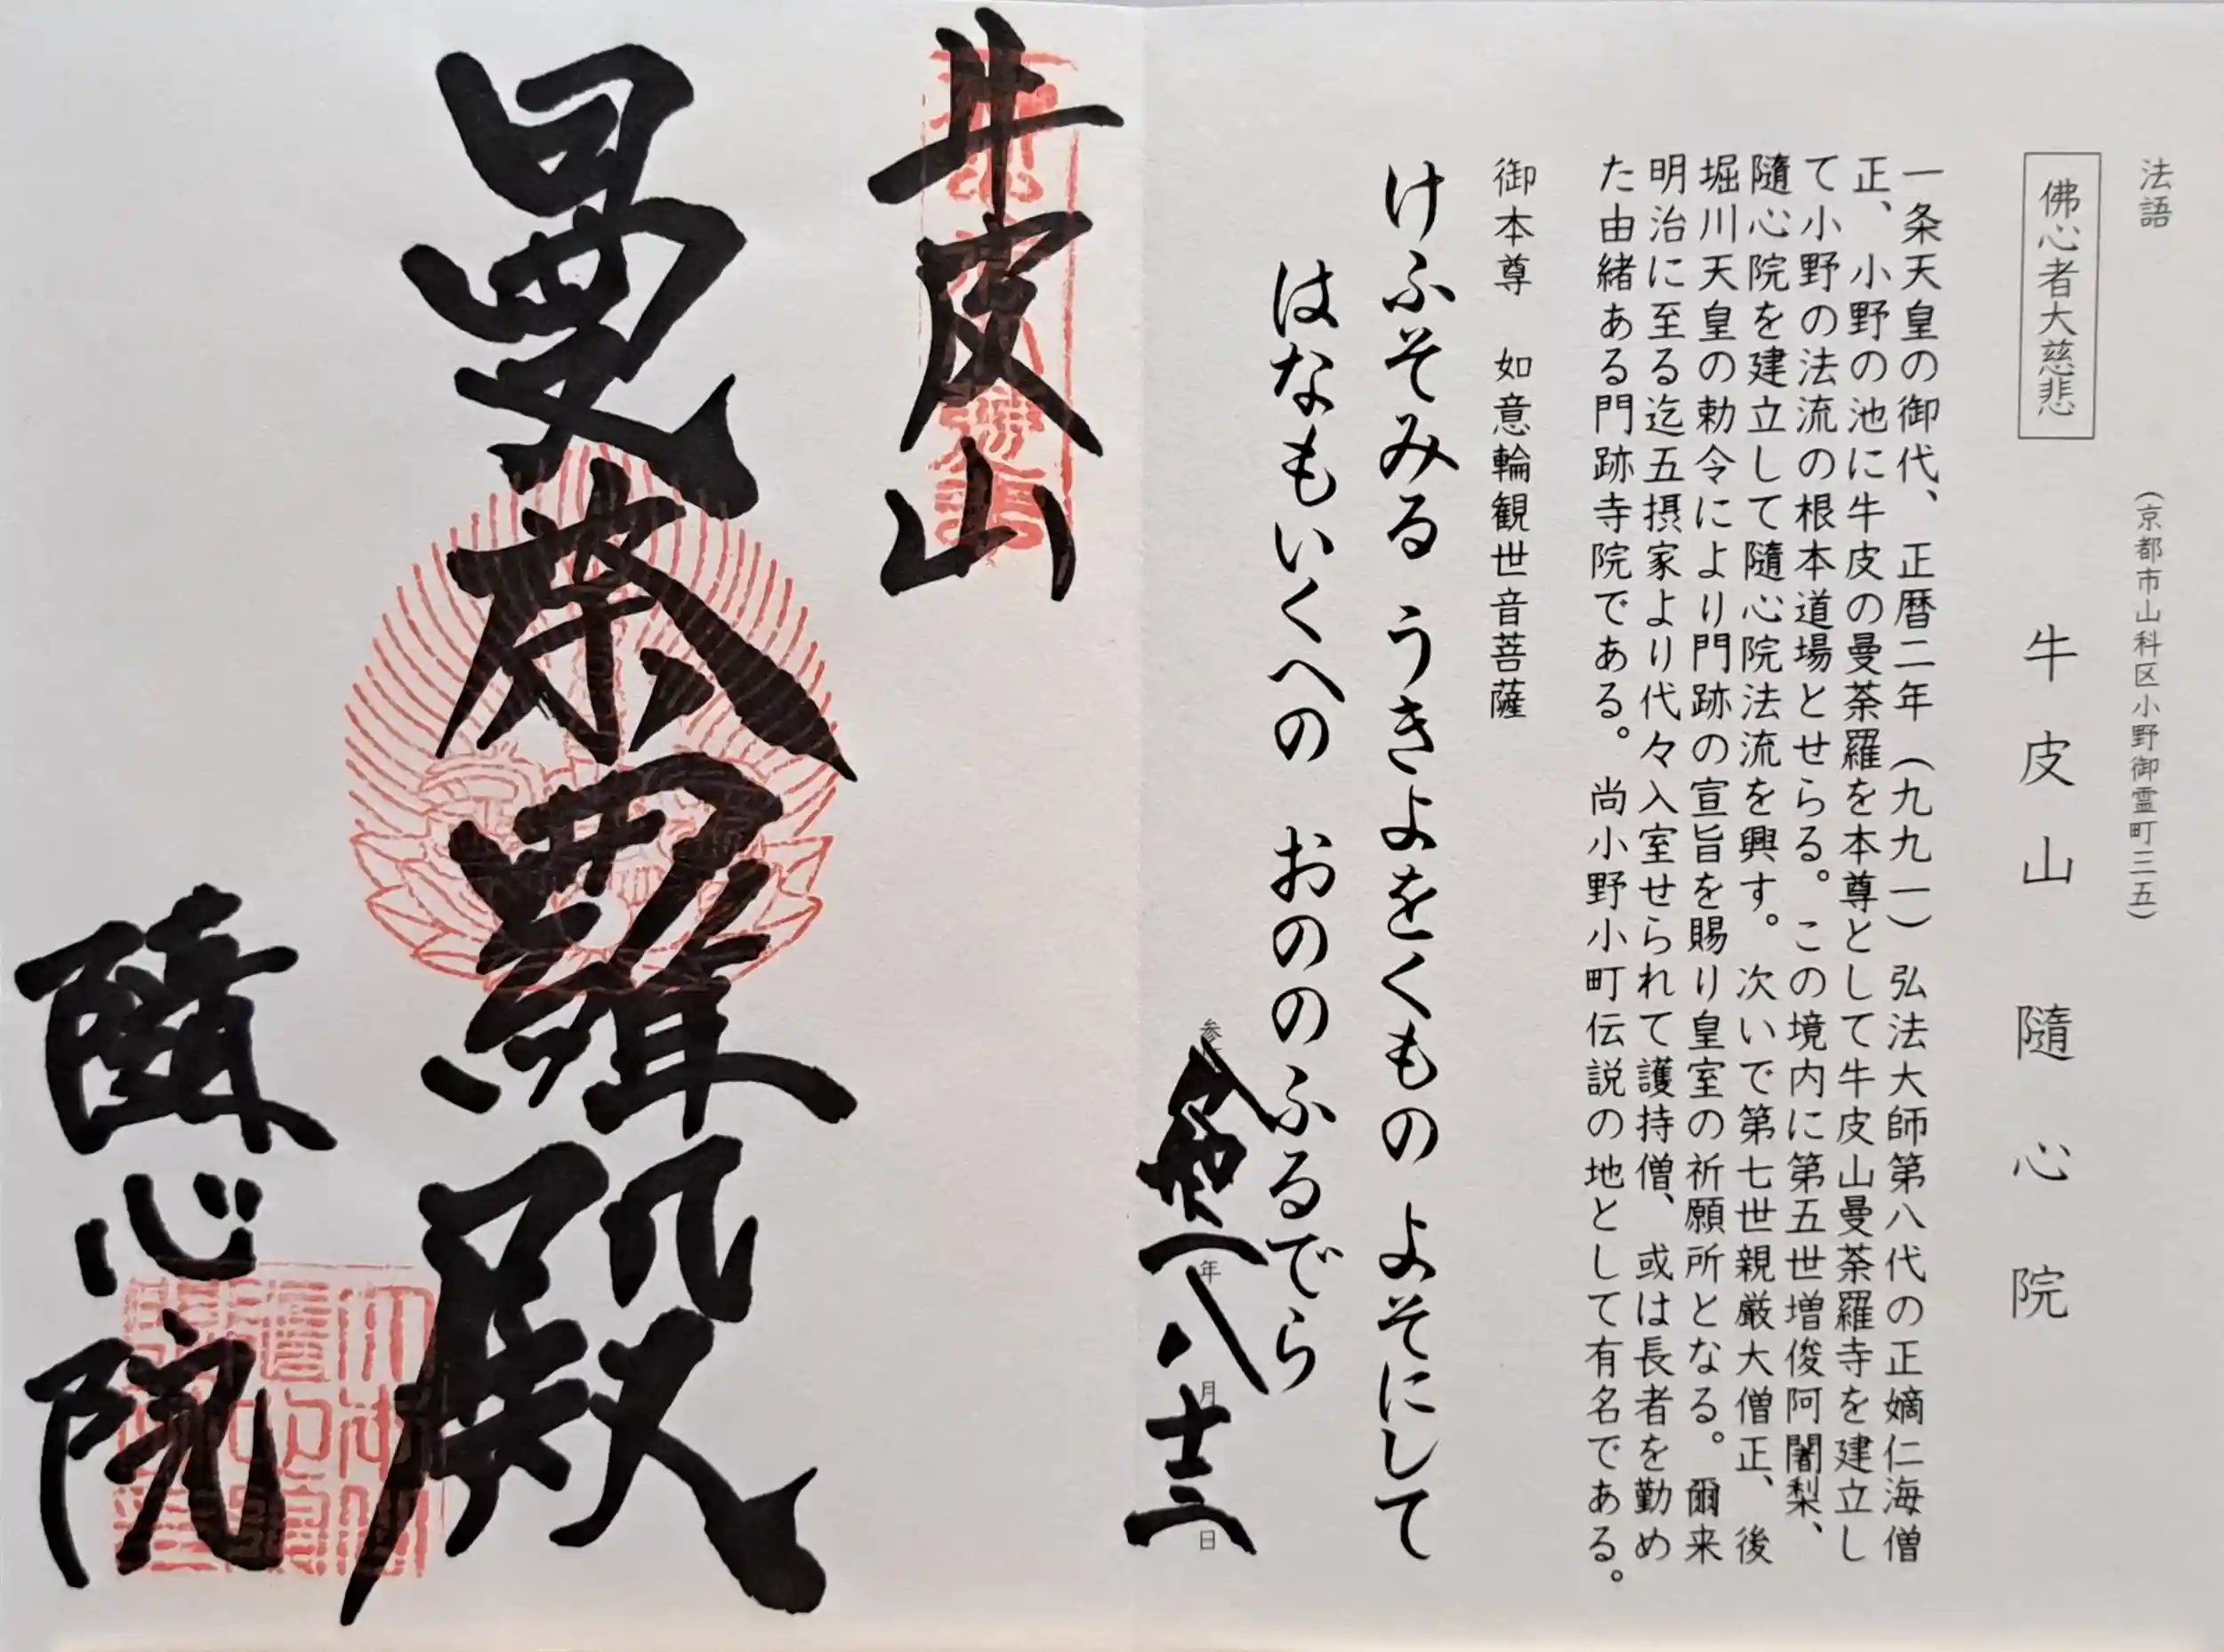 法語
佛心者大慈悲
(京都市山科区小野御霊町三五)
牛皮山 隨心院
一条天皇の御代、正暦二年(九九一)弘法大師第八代の正嫡仁海僧
正、小野の池に牛皮の曼荼羅を本尊として牛皮山曼荼羅寺を建立し
て小野の法流の根本道場とせらる。この境内に第五世増俊阿闍梨、
隨心院を建立して隨心院法流を興す。次いで第七世親厳大僧正、後
堀川天皇の勅令により門跡の宣旨を賜り皇室の祈願所となる。爾来
明治に至る迄五摂家より代々入室せられて護持僧、或は長者を勤め
た由緒ある門跡寺院である。尚小野小町伝説の地として有名である。
御本尊 如意輪観世音菩薩
けふそみる うきよをくもの よそにして
はなもいくへの おののふるでら
年八月十二日
牛皮山
曼荼羅殿
隨心院